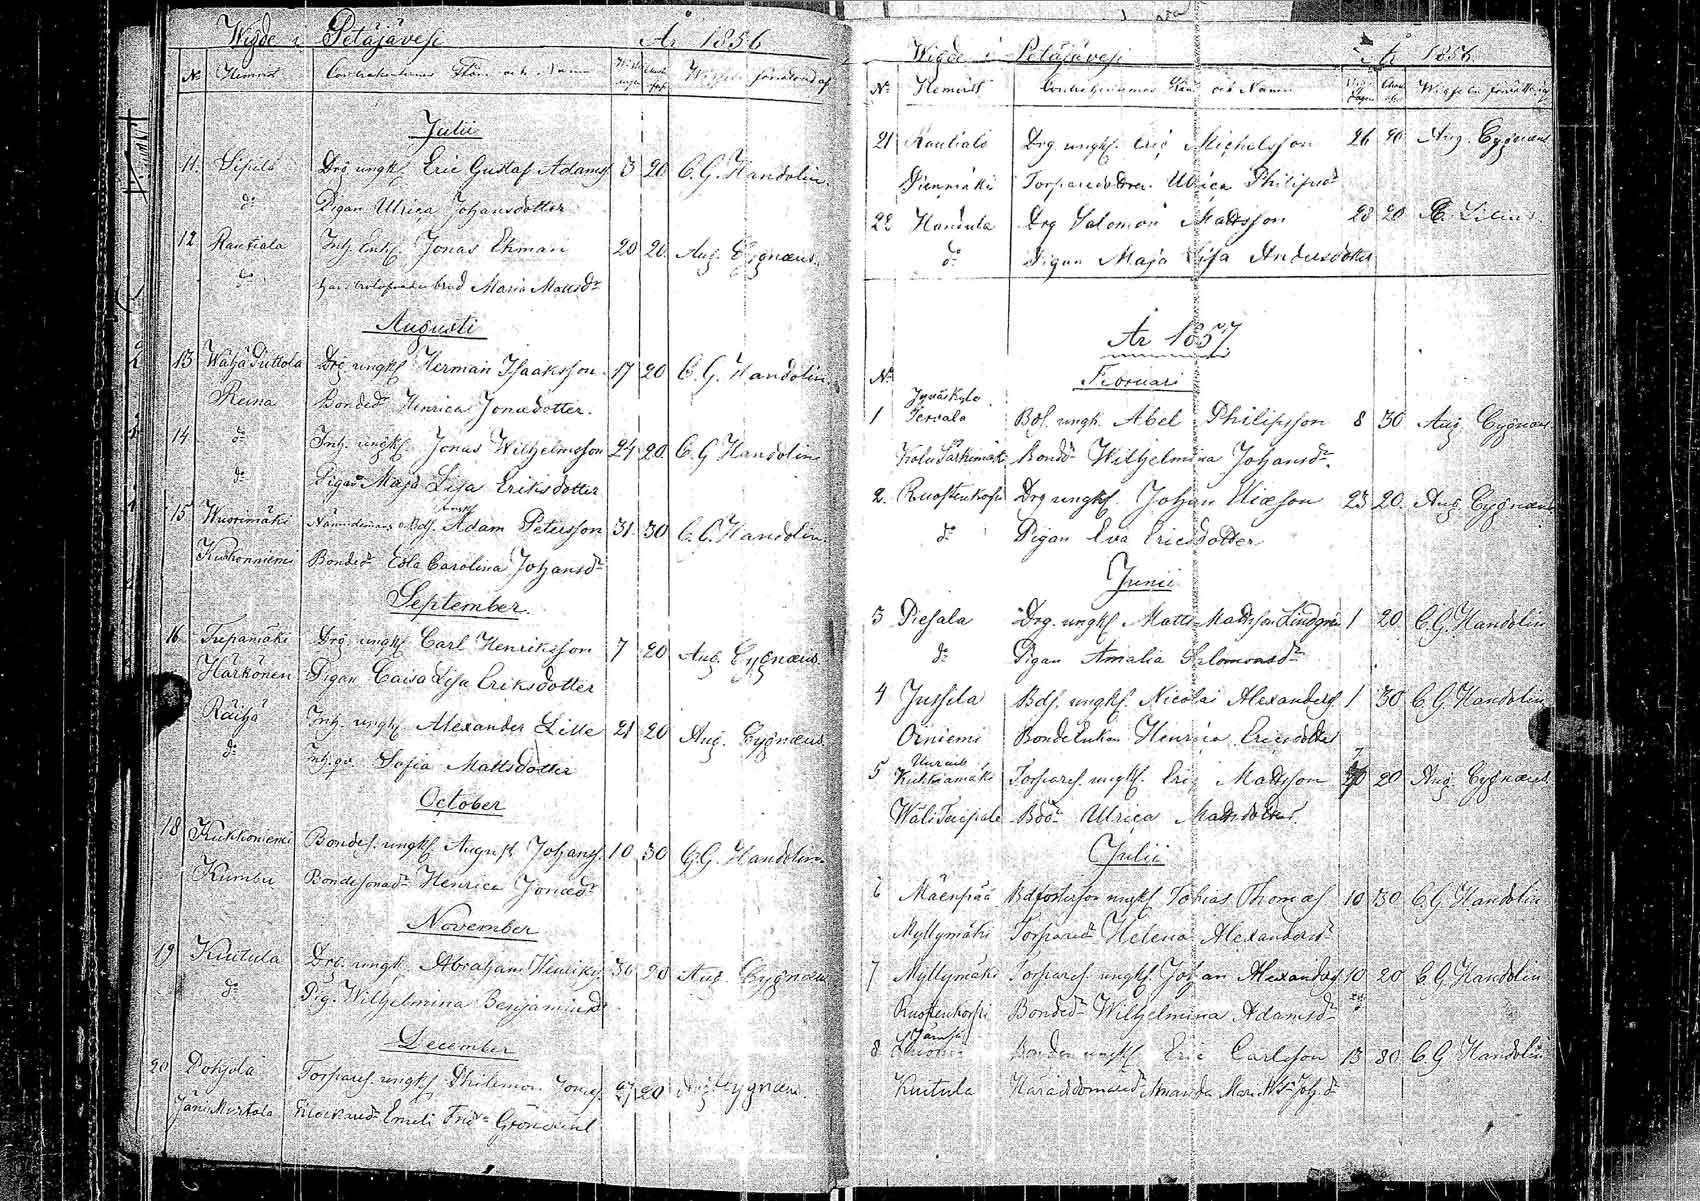 Wigde i Petäjävesi År 1856
No Hemvist Contrahenternas Stån och Namn
Julii
11. Drg ungkf Eric Gustaf Adamsf 3 20 C. G. Handolin.
do Pigan Ulrica Johansdotter
12 Rautiala Inh. Enkf. Jonas Ekman 20 20 Aug. Cygnæus.
do brud Maria Mattsdr
Augusti
13 Wähä Puttola Drg ungkf Herman Isaaksson 17 20 C. G. Handolin
Reina Bonded Henrica Jonædotter.
14 do Inh. ungkf. Jonas Wilhelmsson 24 20 C. G Handolin
do Pigan Maja Lisa Eriksdotter
15 Wuorimäki Adam Petersson 31. 30 C. G. Handolin.
Kukkoniemi Bonded Edla Carolina Johansdr
September.
16 Trepamäki Drg ungkf Carl Henriksson 7 20 Aug. Cygnæus.
Härkönen Pigan Caisa Lisa Eriksdotter
Räihä Inh. ungkf Alexander Lille 21 20 Aug. Cygnæus.
do Inh. qv. Sofia Mattsdotter
October
18 Kukkoniemi Bondes. ungkf. August Johansf. 10 30 C. G. Handolin.
Kumbu Bondesonadr Henrica Jonædr
November
19 Kintula Drg. ungk. Abraham Henriksf. 30 20 Aug. Cygnæus
do Pig. Wilhelmina Benjaminsdr
December
20 Pohjola Torparef. ungkf Philemon Jonæf 27 20 Aug. Cygnæus.
Emeli Fredr Grönlund
Wigde i Petäjävesi År 1856.
No Hemvist och Namn
21 Rautiala Drg ungkf. Eric Michelsson 26 20 Aug. Cygnæus
Pienmäki Torparedotren Ulrica Philipsdr
22 Handula Drg Salomon Mattsson 28 20 Lilius.
do Pigan Maja Lisa Andersdotter
År 1857
No Februari
Jyväskylä
1 Tervala Bdf. ungk. Abel Philipsson 8 30 Aug Cygnæus.
Bondd Wilhelmina Johansdr.
2. Ruostenkoski Drg ungkf. Johan 23 20. Aug. Cygnæus
do Pigan Eva Ericsdotter
Junii
3 Piesala Drg. ungkf Matts Mattsson Lindgren 1 20 C. G. Handolin
do Pigan Amalia Salomonsdr
4 Jussila Bdf. ungkf. Nicolai Alexandersf 1 30 C. G Handolin
Oiniemi Henrica Ericsdotter
5 Kukkamäki Torparef. ungkf. Eric Mattsson 20 Aug Cygnæus.
Wäli Taipale Bdd Ulrica Mattsdotter.
Julii
6 Mäenpää Bdfosterson ungkf Tobias Thomæf 10 30 C. G. Handolin
Myllymäki Torpared Helena Alexandersdr
7 Myllymäki Torparef. ungkf. Johan Alexandersf 10 20 C. G. Handolin
Ruostenkoski Bonded Wilhelmina Adamsdr
Jämsä
8 Bonden ungkf Eric Carlsson 13 30 C. G. Handolin
Kintula Häradsdomared Amanda Johsdr